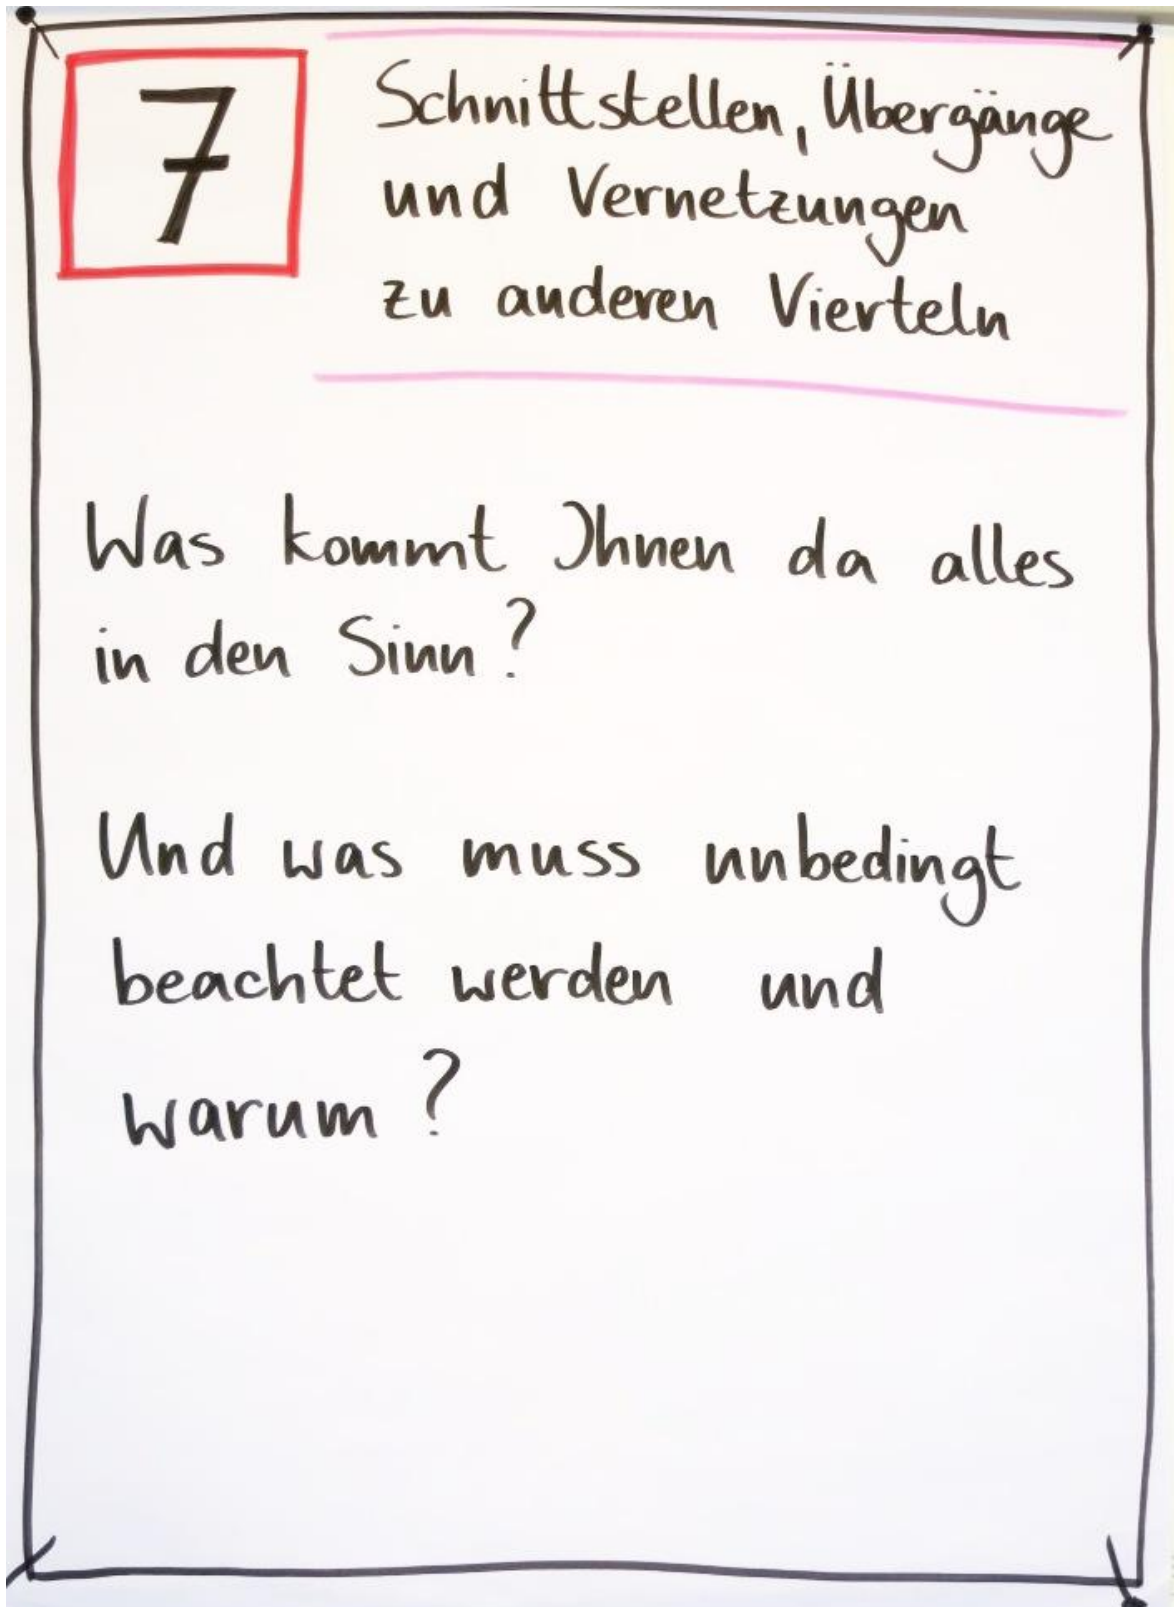 7
Schnittstellen, Übergänge
und Vernetzungen
zu anderen Vierteln
Was kommt Ihnen da alles
in den Sinn?
Und was muss unbedingt
beachtet werden und
warum?